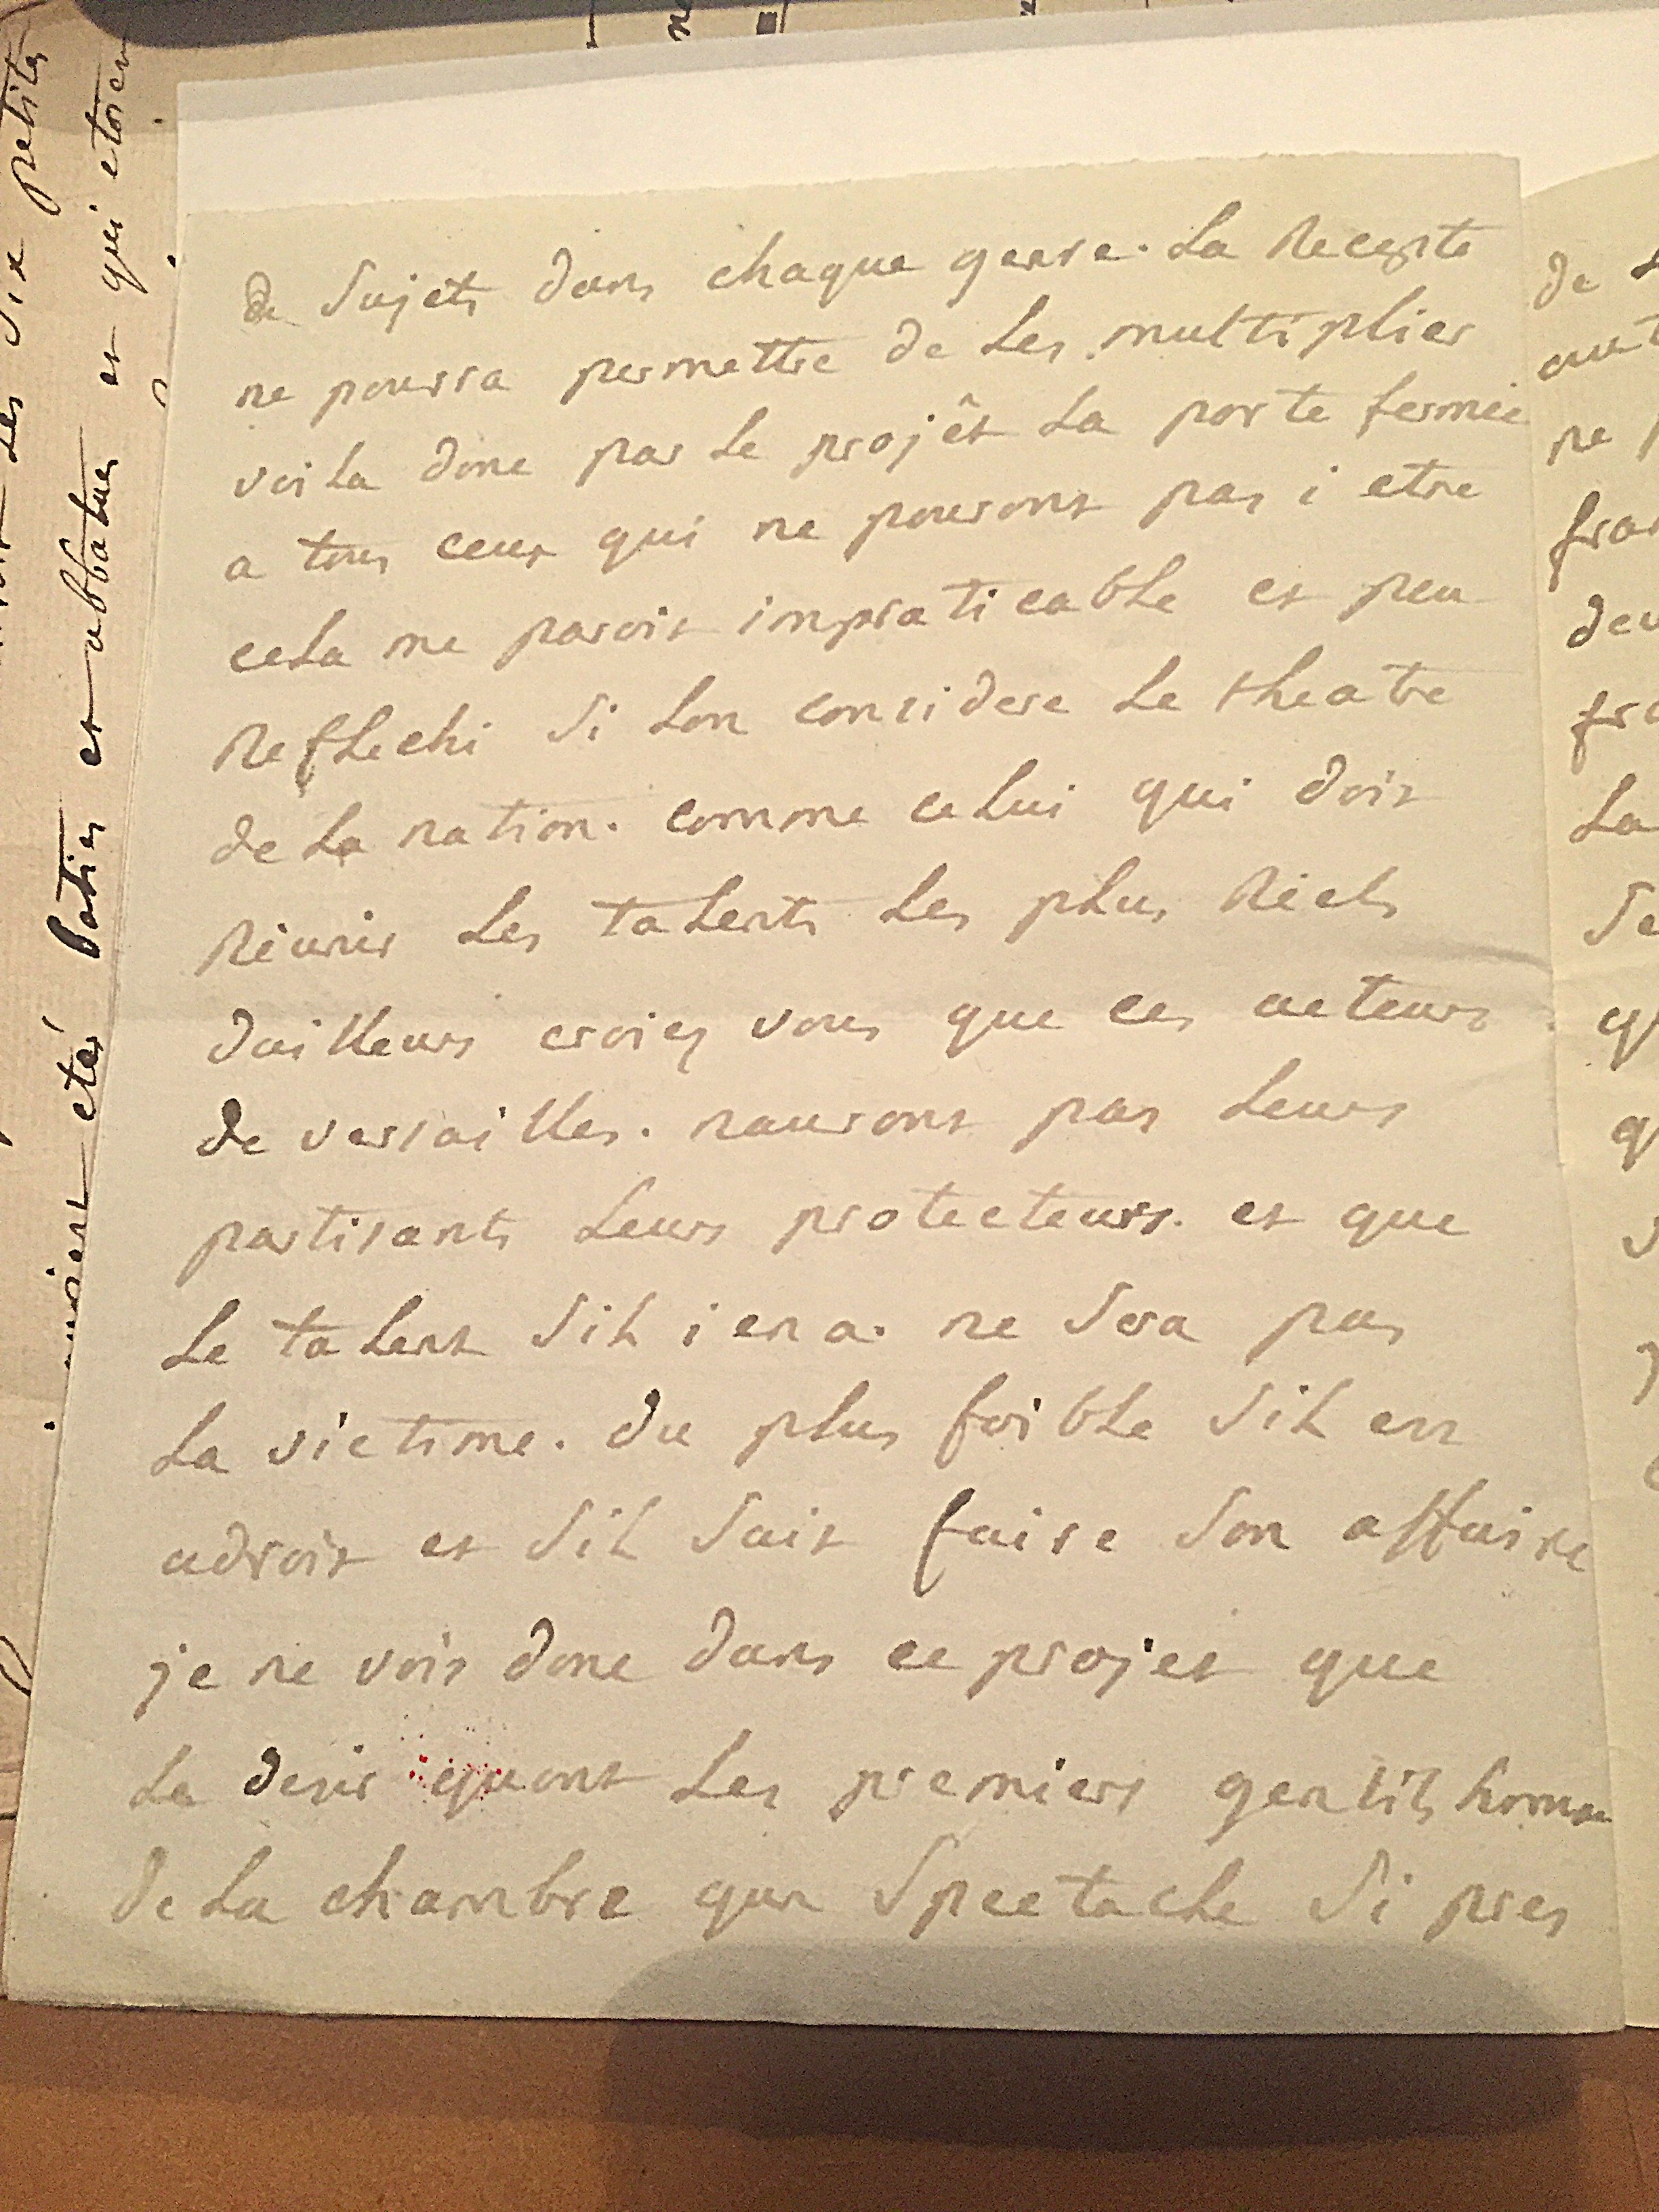 de sujets dans chaque genre. La Recepte
ne pourra permettre de Les multiplier
voila donc par Le projêt La porte fermée
a tous ceux qui ne pouront pas i etre
cela me paroit impraticable et peu
Reflechi si Lon considere Le theatre
de La nation. comme celui qui doit
Réunir Les talents Les plus Réels
dailleurs croiez vous que ces acteurs
de versailles. nauront pas Leurs
partisants Leurs protecteurs. et que
Le talent sil i en a. ne sera pas
La victime. du plus foible sil en
adroit et sil sait faire son affaire
je ne vois donc dans ce projet que
Le desir quont Les premiers gentils homme
de La chambre qun spectacle si pres
Les six petites
et qui etoien
Baties et abbatues et
etés
de
frai
La